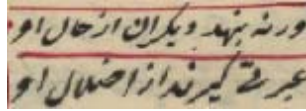 ور نه بنهد دیگران از حال او
عبرتی گیرند از اضلال او